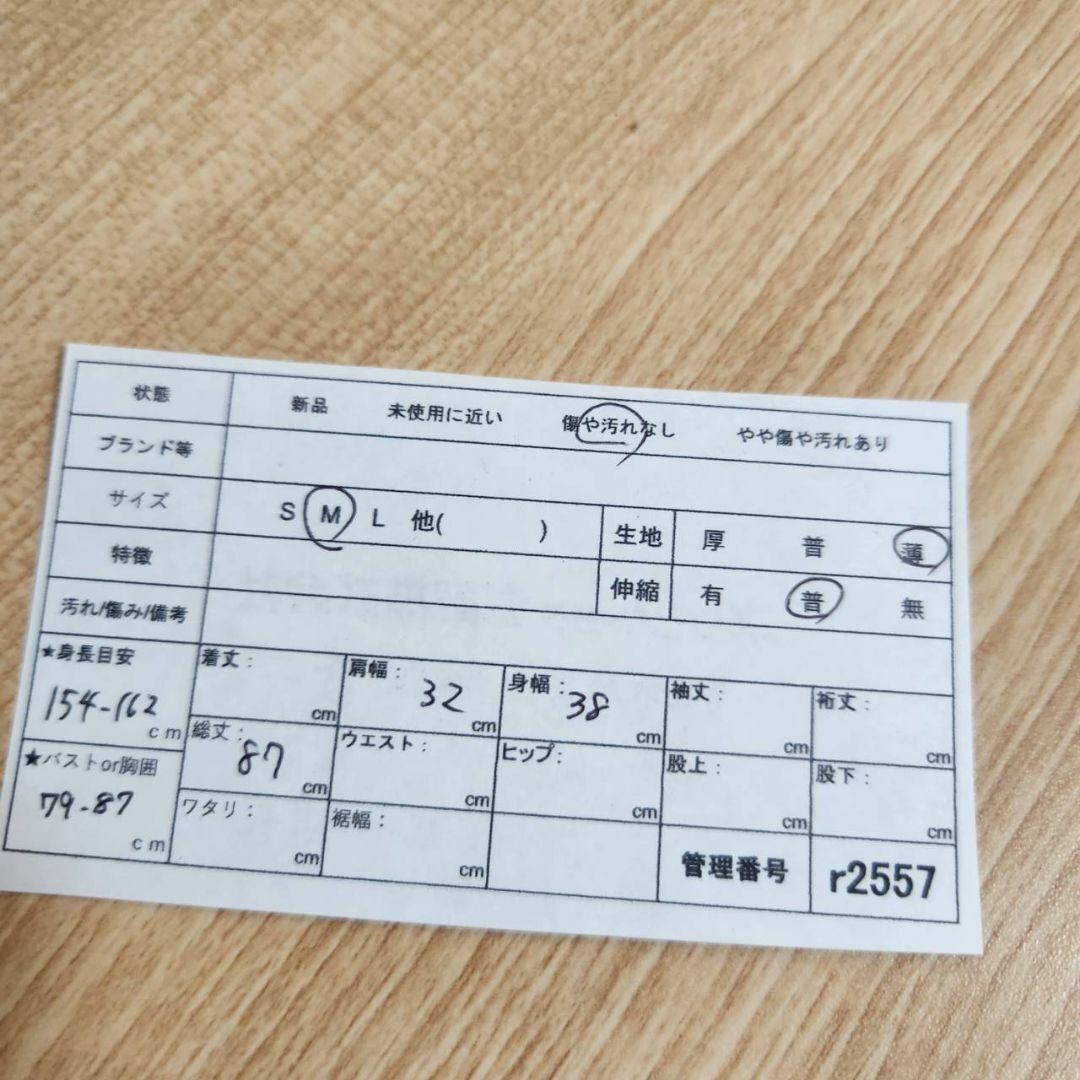 状態 新品 未使用に近い 傷や汚れなし やや傷や汚れあり
ブランド等
サイズ S M L 他( ) 生地 厚 普 薄
特徴 伸縮 有 普 無
汚れ/傷み/備考
★身長目安 着丈: 肩幅: 32 身幅: 38 袖丈: 裄丈:
154-162 cm cm cm cm cm cm
★バストor胸囲 総丈: 87 ウエスト: ヒップ: 股上: 股下:
79-87 cm cm cm cm cm cm
ワタリ: cm 裾幅: cm 管理番号 r2557